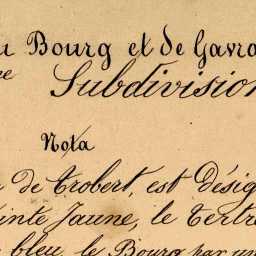 u Bourg et de Gavra
me Subdivision
Nota
de Trobert, est désig
inte Jaune, le Tertre
bleu, le Bourg par un